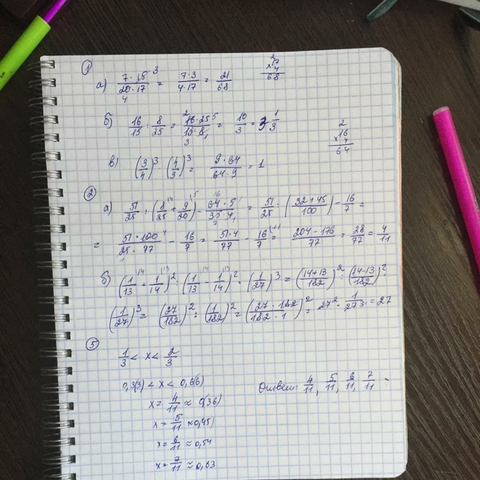 1
а) 7·15/20·17 = 7·3/4·17 = 21/68
17
×4
68
б) 16/15 : 8/25 = 16·25/15·8 = 10/3 = 3 1/3
2
16
×4
64
в) (3/4)³ · (4/3)³ = 9·64/64·9 = 1
2
а) 51/25 : (8/25 + 9/20) - 64·5/35·4 = 51/25 : (32+45/100) - 16/7 =
= 51·100/25·77 - 16/7 = 51·4/77 - 16/7 = 204-176/77 = 28/77 = 4/11
б) (1/13 + 1/14)² : (1/13 - 1/14)² · (1/27)³ = (14+13/182)² : (14-13/182)² ·
(1/27)³ = (27/182)² : (1/182)² = (27·182/182·1)² = 27² · 1/27³ = 27
5
1/3 < x < 2/3
0,3(3) < x < 0,6(6)
x = 4/11 ≈ 0(36)
x = 5/11 ≈ 0,45
x = 6/11 ≈ 0,54
x = 7/11 ≈ 0,63
Ответ: 4/11, 5/11, 6/11, 7/11